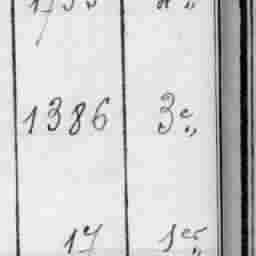 1386 3e„
17 1er„